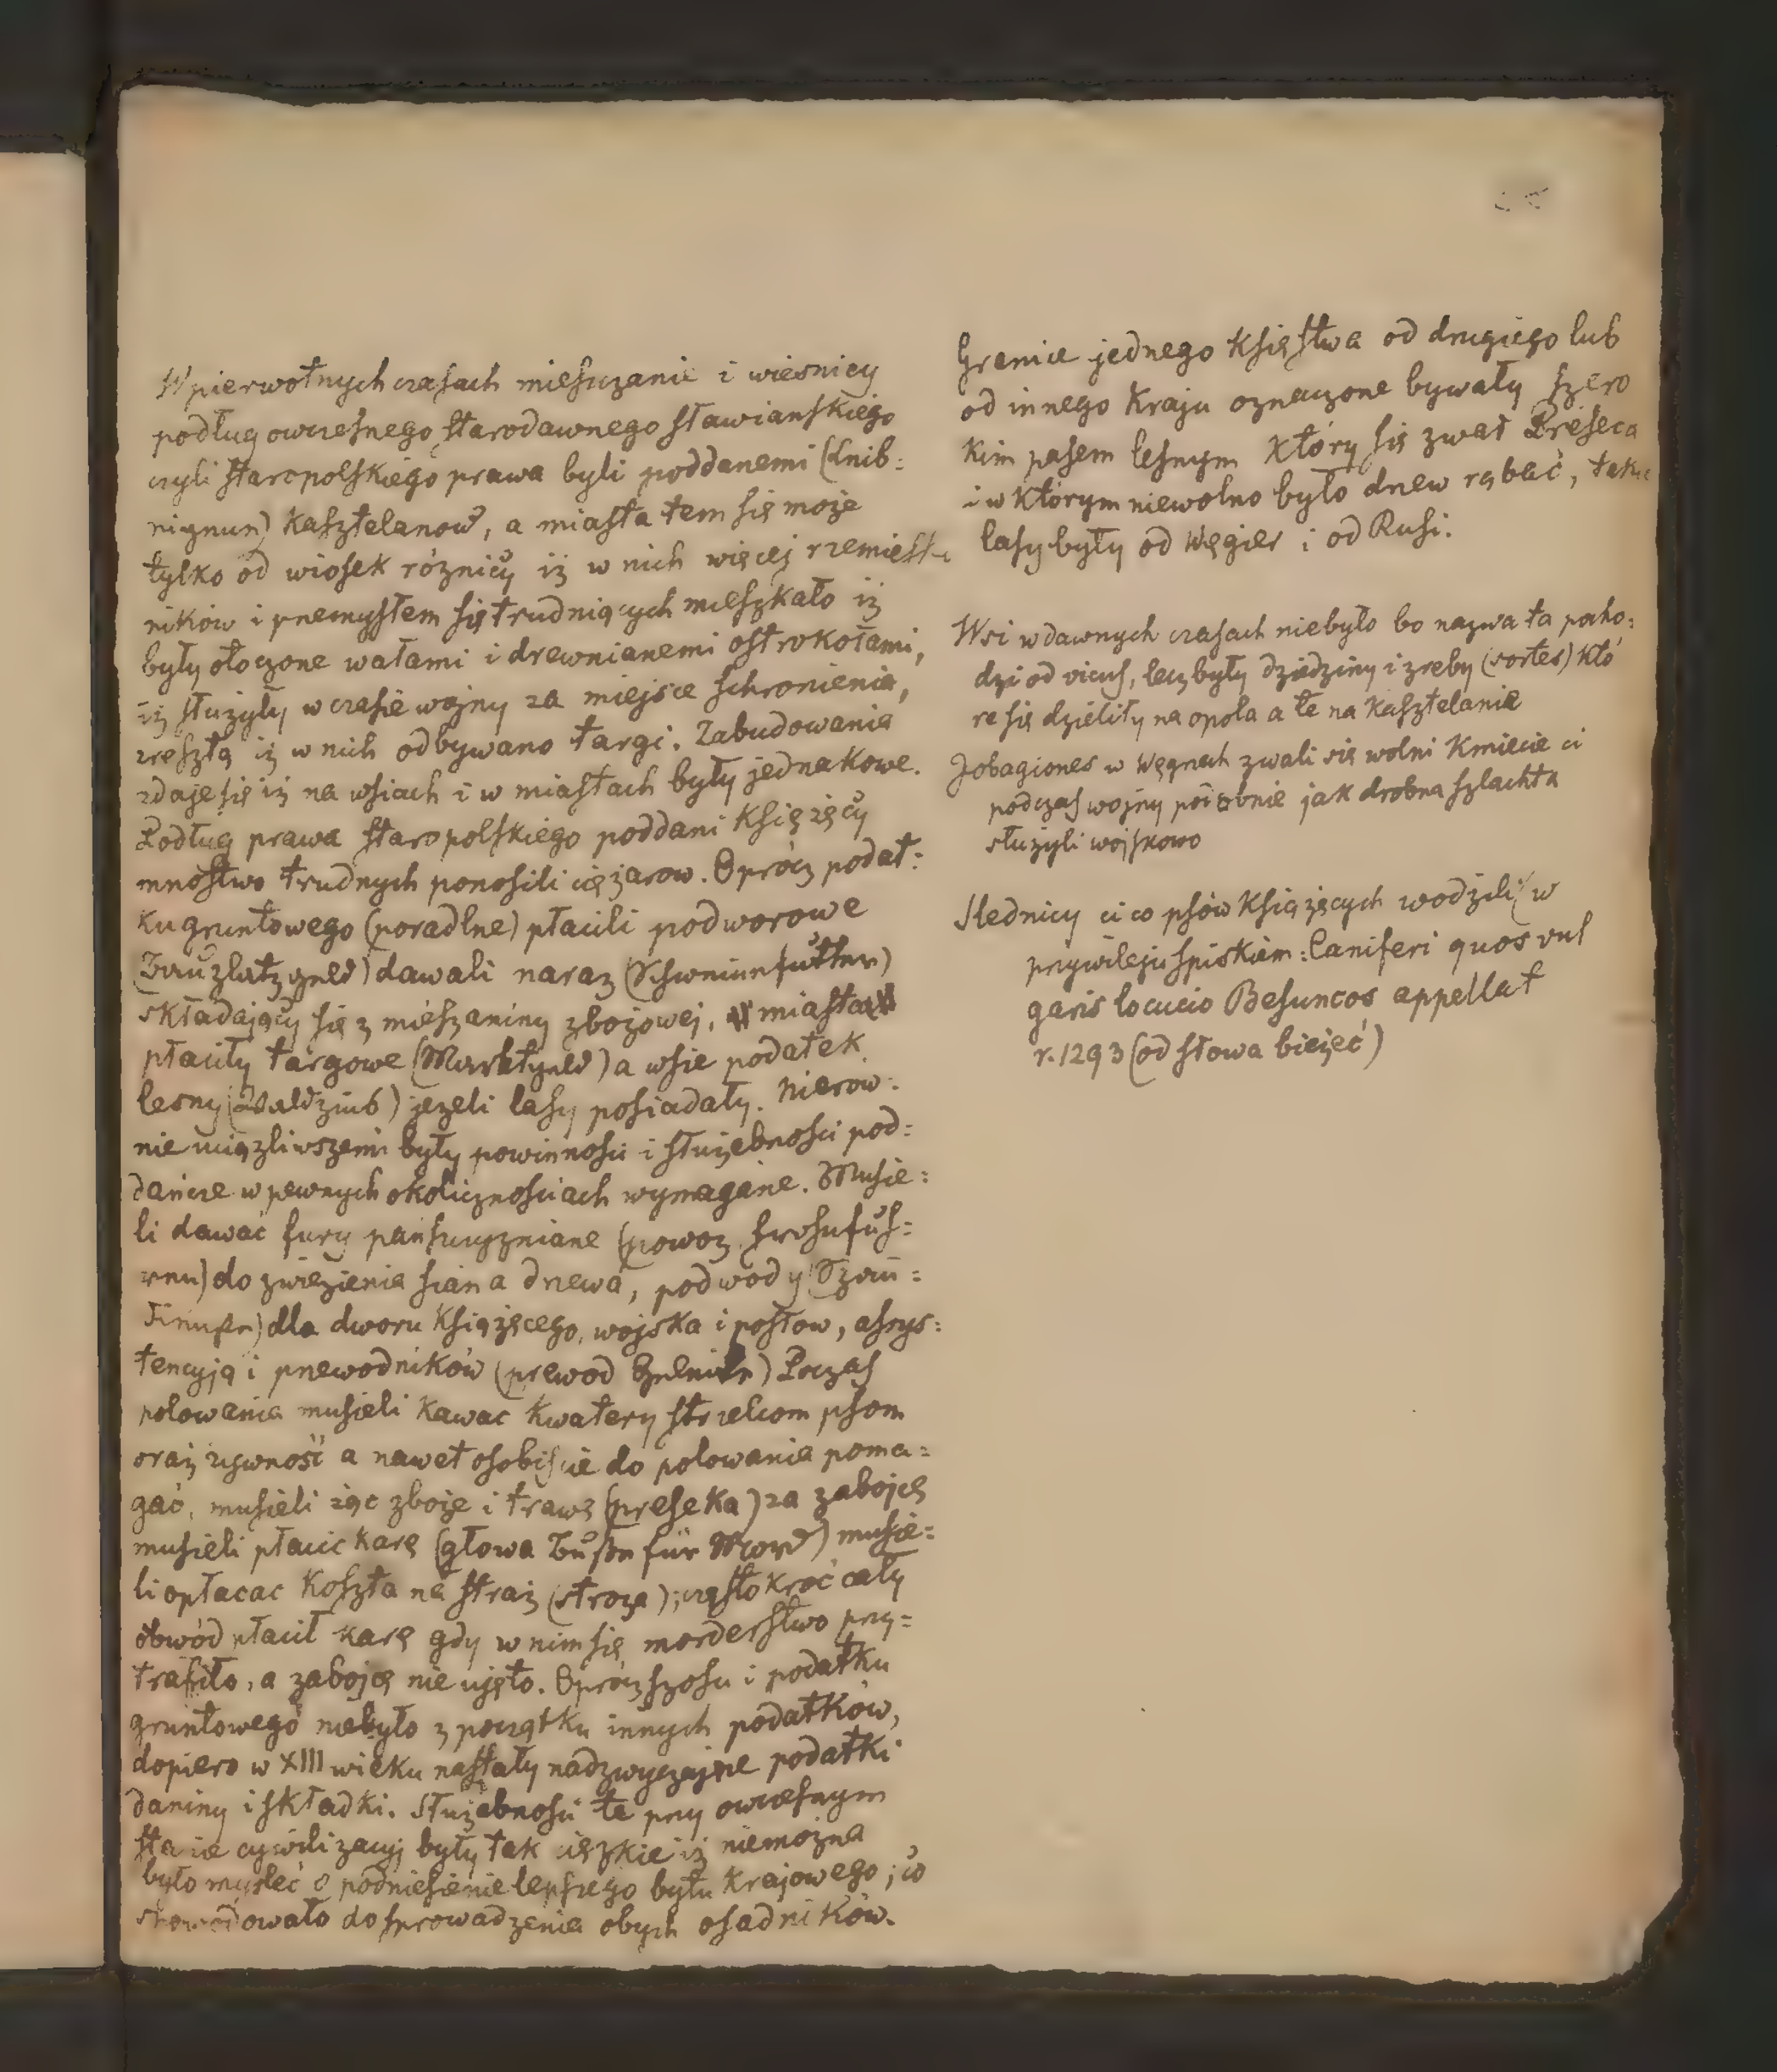 W pierwotnych czasach mieszczanie i wiesnicy
podług owczesnego starodawnego sławianskiego
czyli staropolskiego prawa byli poddanemi (Leib=
eignen) Kasztelanow, a miasta tem się może
tylko od wiosek rózniły iż w nich więcej rzemieśl
ników i przemysłem się trudniących mieszkało iż
były otoczone wałami i drewnianemi ostrokołami,
iż służyły w czasie wojny za miejsce schronienia,
zresztą iż w nich odbywano targi. Zabudowania
zdaje się iż na wsiach i w miastach były jednakowe.
Podług prawa staropolskiego poddani Książęcy
mnóstwo trudnych ponosili ciężarow. Oprócz podat=
ku gruntowego (poradlne) płacili podworowe
(Bauzlatzgeld) dawali naraz (Schweinefutter)
składający się z mieszaniny zbożowej, miasta
płaciły targowe (Marktgeld) a wsie podatek
lesny (Waldzins) jezeli lasy posiadały. Nierow=
nie uciązliwszemi były powinnosci i służebnosci pod=
dańcze w pewnych okolicznosciach wymagane. Musie=
li dawać fury pańszczyzniane (powoz Frohnfuh=
ren) do zwiezienia siana drzewa, podwody
dla dworu Książęcego, wojska i posłow, assys=
tencyją i przewodników (prewod Geleite) Poczas
polowania musieli kawac kwatery strzelcom psom
oraz zywność a nawet osobiscie do polowania poma=
gać, musieli ząc zboże i trawę (preseka) za zabojcę
musieli płacic karę (głowa Buße für Mord) musie=
li opłacac koszta na straż (stroza); częstokroć cały
obwód płacił karę gdy w nim się morderstwo przy=
trafiło, a zabojcę nie ujęto. Oprócz szosu i podatku
gruntowego niebyło z początku innych podatków,
dopiero w XIII wieku nastały nadzwyczajne podatki
daniny i składki. Służebnosci te przy owczesnym
stanie cywilizacyj były tak cięzkie iż niemożna
było mysleć o podniesienie lepszego bytu Krajowego; co
spowodowało do sprowadzenia obych osadników.
Granice jednego Księstwa od drugiego lub
od innego Kraju oznaczone bywały szero
kim pasem lesnym który się zwał Preseca
i w którym niewolno było drzew rąbać, takie
lasy były od Węgier i od Rusi.
Wsi w dawnych czasach niebyło bo nazwa ta pocho=
dzi od vicus, lecz były dziedziny i zreby (sortes) któ
re się dzieliły na opola a te na Kasztelanie
Jobagiones w Węgrzech zwali się wolni Kmiecie ci
podczas wojny podobnie jak drobna szlachta
służyli wojskowo
Slednicy ci co psów Książęcych wodzili w
przywileju spiskiem: Caniferi quos vul
garis locucio Besuncos appellat
r. 1293 (od słowa bieżeć)